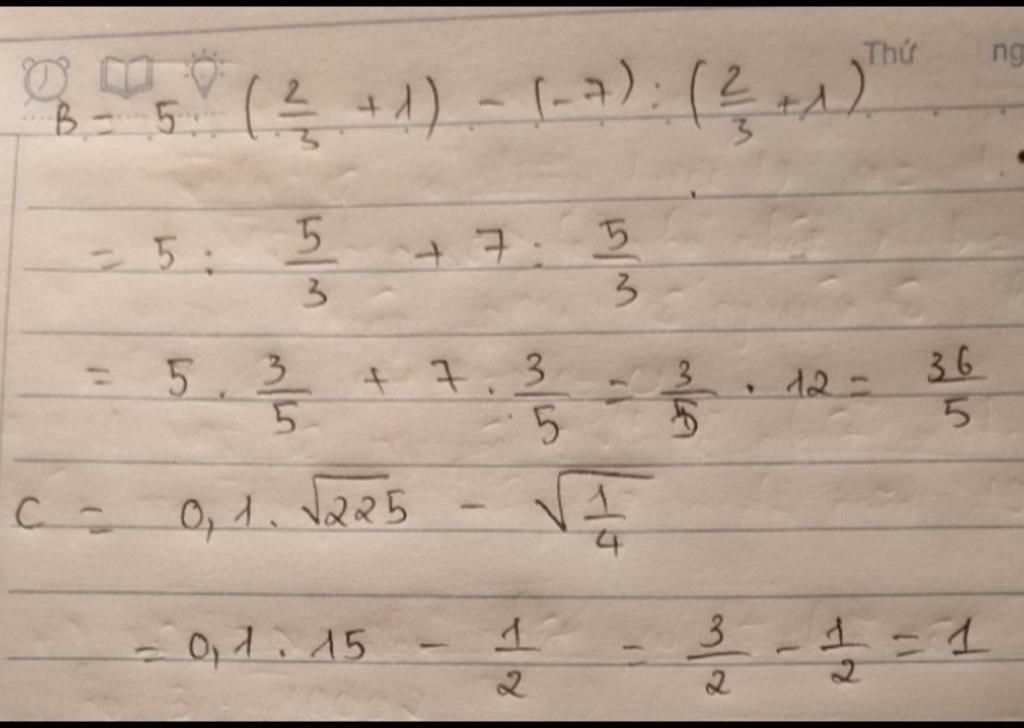 Thứ ng
B = 5 : (2/3 + 1) - (-7) : (2/3 + 1)
= 5 : 5/3 + 7 : 5/3
= 5 . 3/5 + 7 . 3/5 = 3/5 . 12 = 36/5
C = 0,1 . √225 - √(1/4)
= 0,1 . 15 - 1/2 = 3/2 - 1/2 = 1